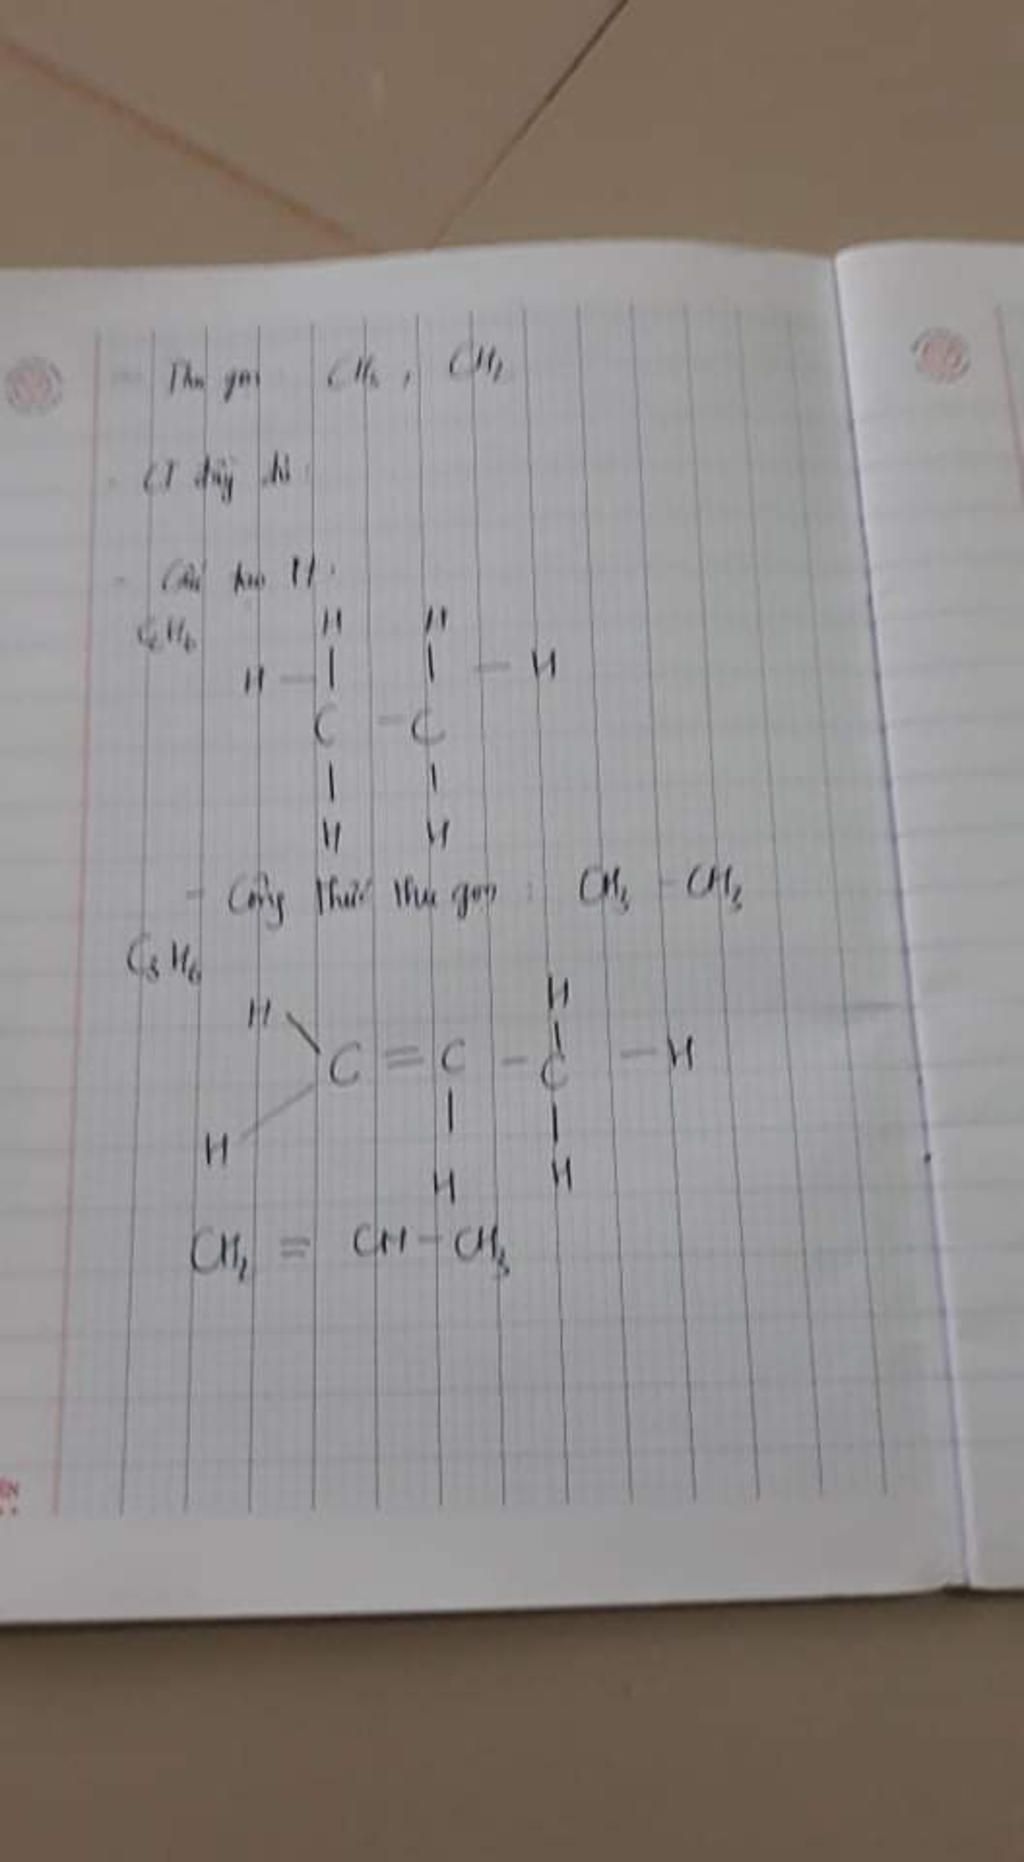 - Thu gọn : CH₃ , CH₂
- CT đầy đủ :
- Cấu tạo
C₂H₆
H H
H - | | - H
C - C
| |
H H
- Công thức thu gọn : CH₃ - CH₃
C₃H₆
H H
C = C - C - H
H H H
CH₂ = CH - CH₃